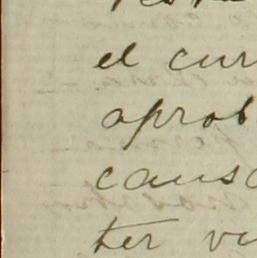 el cur
aprob
causa
ter vi